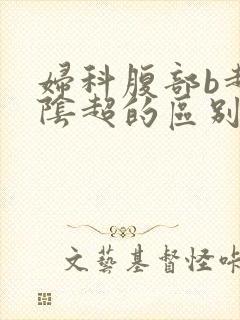 婦科腹部b超
陰超的區别
文藝基督怪咔